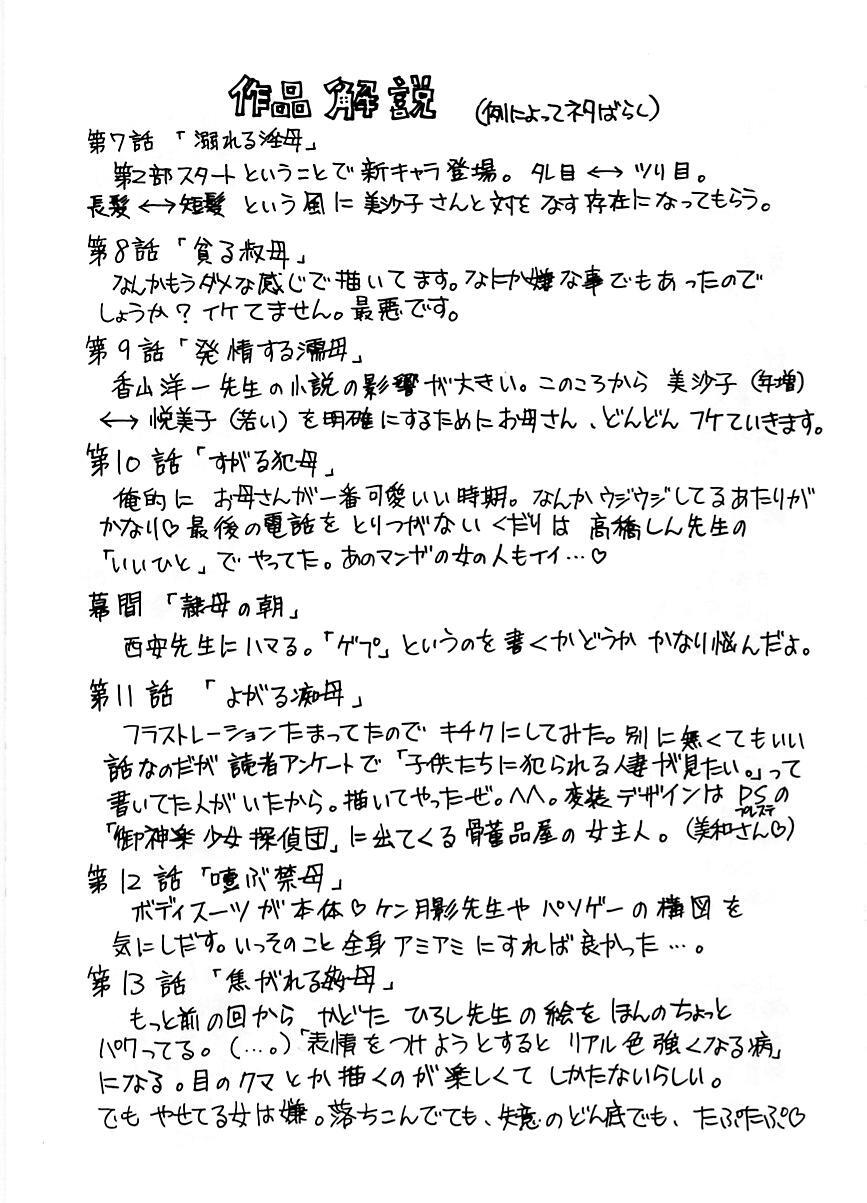 作品解説 (例によってネタばらし)
第7話 「溺れる淫母」
第2部スタートということで新キャラ登場。タレ目 ←→ ツリ目。
長髪 ←→ 短髪 という風に美沙子さんと対をなす存在になってもらう。
第8話 「貪る叔母」
なんかもうダメな感じで描いてます。なにか嫌な事でもあったので
しょうか？イケてません。最悪です。
第9話 「発情する濡母」
香山洋一先生の小説の影響が大きい。このころから 美沙子(年増)
←→ 悦美子(若い)を明確にするためにお母さん、どんどんフケていきます。
第10話 「すがる犯母」
俺的に お母さんが一番可愛いい時期。なんかウジウジしてるあたりが
かなり♡最後の電話をとりつがないくだりは 高橋しん先生の
「いいひと」でやってた。あのマンガの女の人もイイ…♡
幕間 「隷母の朝」
西安先生にハマる。「ゲプ」というのを書くかどうか かなり悩んだよ。
第11話 「よがる痴母」
フラストレーションたまってたので キチクにしてみた。別に無くてもいい
話なのだが 読者アンケートで「子供たちに犯られる人妻が見たい。」って
書いてた人がいたから。描いてやったぜ。^^。変装デザインは PSの
プレステ
「御神楽少女探偵団」に出てくる骨董品屋の女主人。(美和さん♡)
第12話 「噎ぶ禁母」
ボディスーツが本体♡ケン月影先生や パソゲーの構図を
気にしだす。いっそのこと 全身アミアミにすれば良かった…。
第13話 「焦がれる母」
もっと前の回から かどた ひろし先生の絵をほんのちょっと
パクってる。(…。)「表情をつけようとすると リアル色強くなる病」
になる。目のクマとか描くのが楽しくてしかたないらしい。
でもやせてる女は嫌。落ちこんでても、失意のどん底でも、たぷたぷ♡